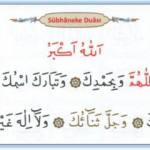 Sübhâneke Duâsı
اَللّٰهُ اَكْبَرُ
وَبِحَمْدِكَ وَتَبَارَكَ اسْمُكَ
وَجَلَّ ثَنَائُكَ وَلَا اِلٰهَ